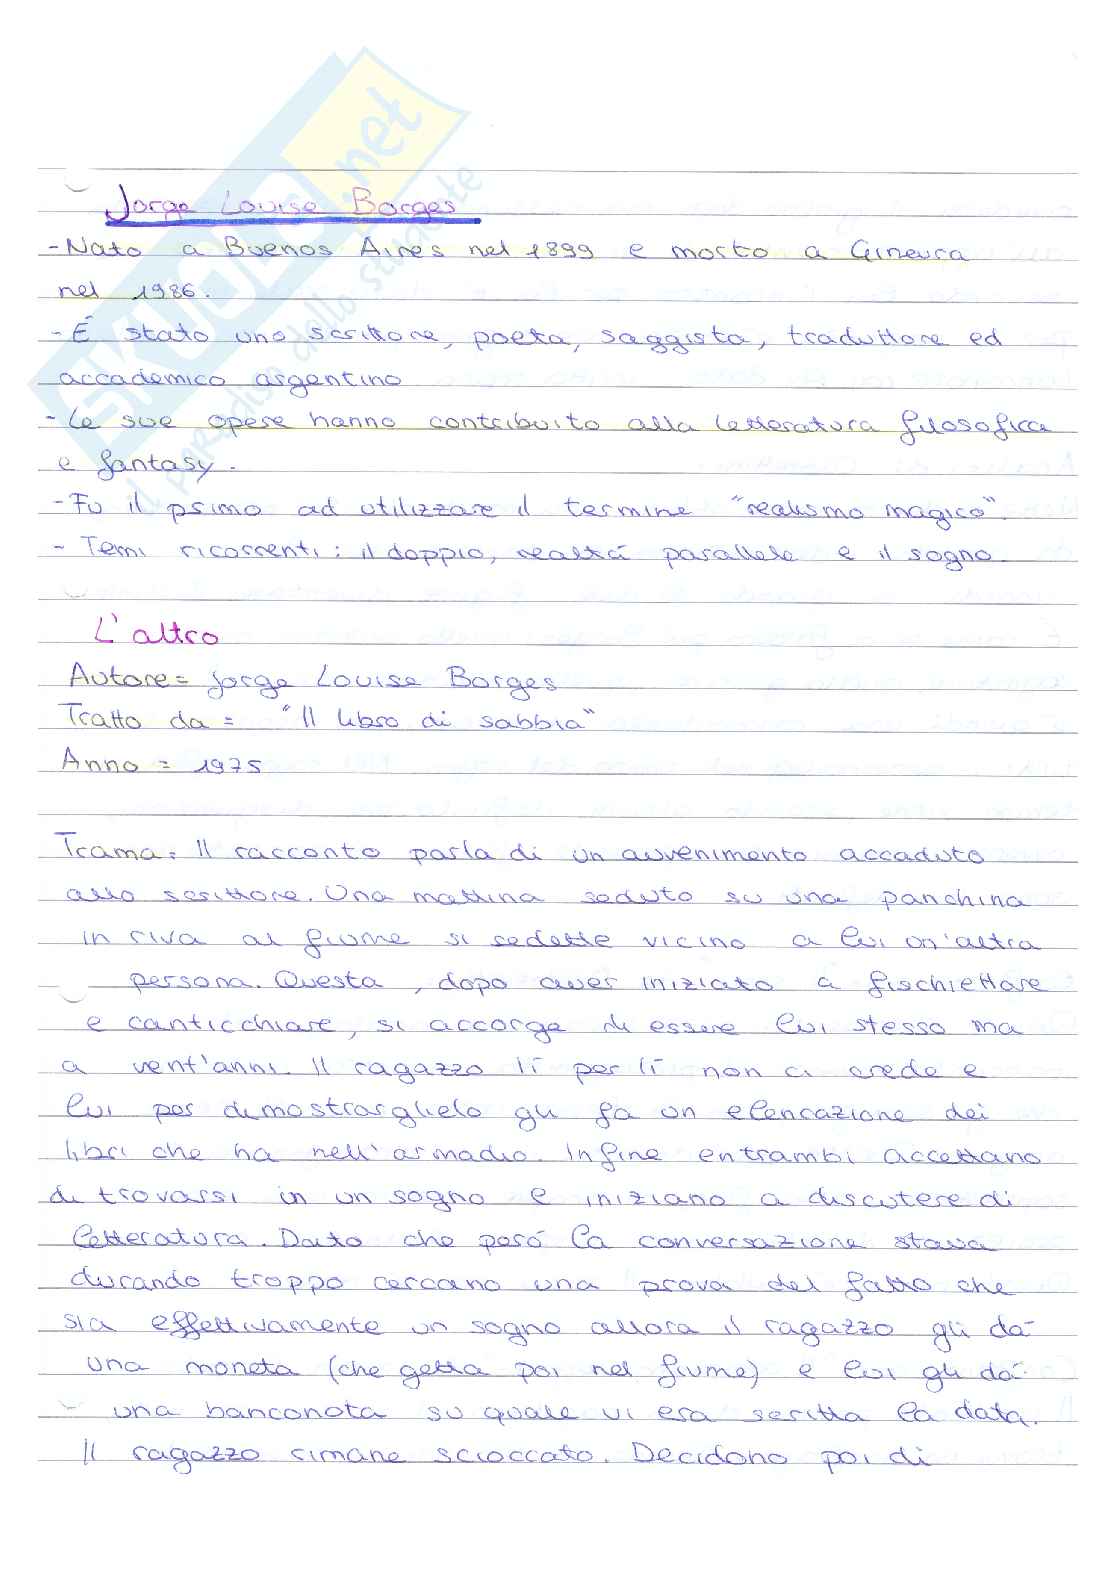 Jorge Louise Borges
- Nato a Buenos Aires nel 1899 e morto a Ginevra
nel 1986.
- È stato uno scrittore, poeta, saggista, traduttore ed
accademico argentino
- Le sue opere hanno contribuito alla letteratura filosofica
e fantasy.
- Fu il primo ad utilizzare il termine "realismo magico".
- Temi ricorrenti: il doppio, realtà parallele e il sogno.
L'altro
Autore = Jorge Louise Borges
Tratto da = "Il libro di sabbia"
Anno = 1975
Trama = Il racconto parla di un avvenimento accaduto
allo scrittore. Una mattina seduto su una panchina
in riva al fiume si sedette vicino a lui un'altra
persona. Questa, dopo aver iniziato a fischiettare
e canticchiare, si accorge di essere lui stesso ma
a vent'anni. Il ragazzo lì per lì non ci crede e
lui per dimostrarglielo gli fa un elencazione dei
libri che ha nell'armadio. Infine entrambi accettano
di trovarsi in un sogno e iniziano a discutere di
letteratura. Dato che però la conversazione stava
durando troppo cercano una prova del fatto che
sia effettivamente un sogno allora il ragazzo gli dà
una moneta (che getta poi nel fiume) e lui gli dà
una banconota su quale vi era scritta la data.
Il ragazzo rimane scioccato. Decidono poi di
SKUOLA.net
il paradiso dello studente